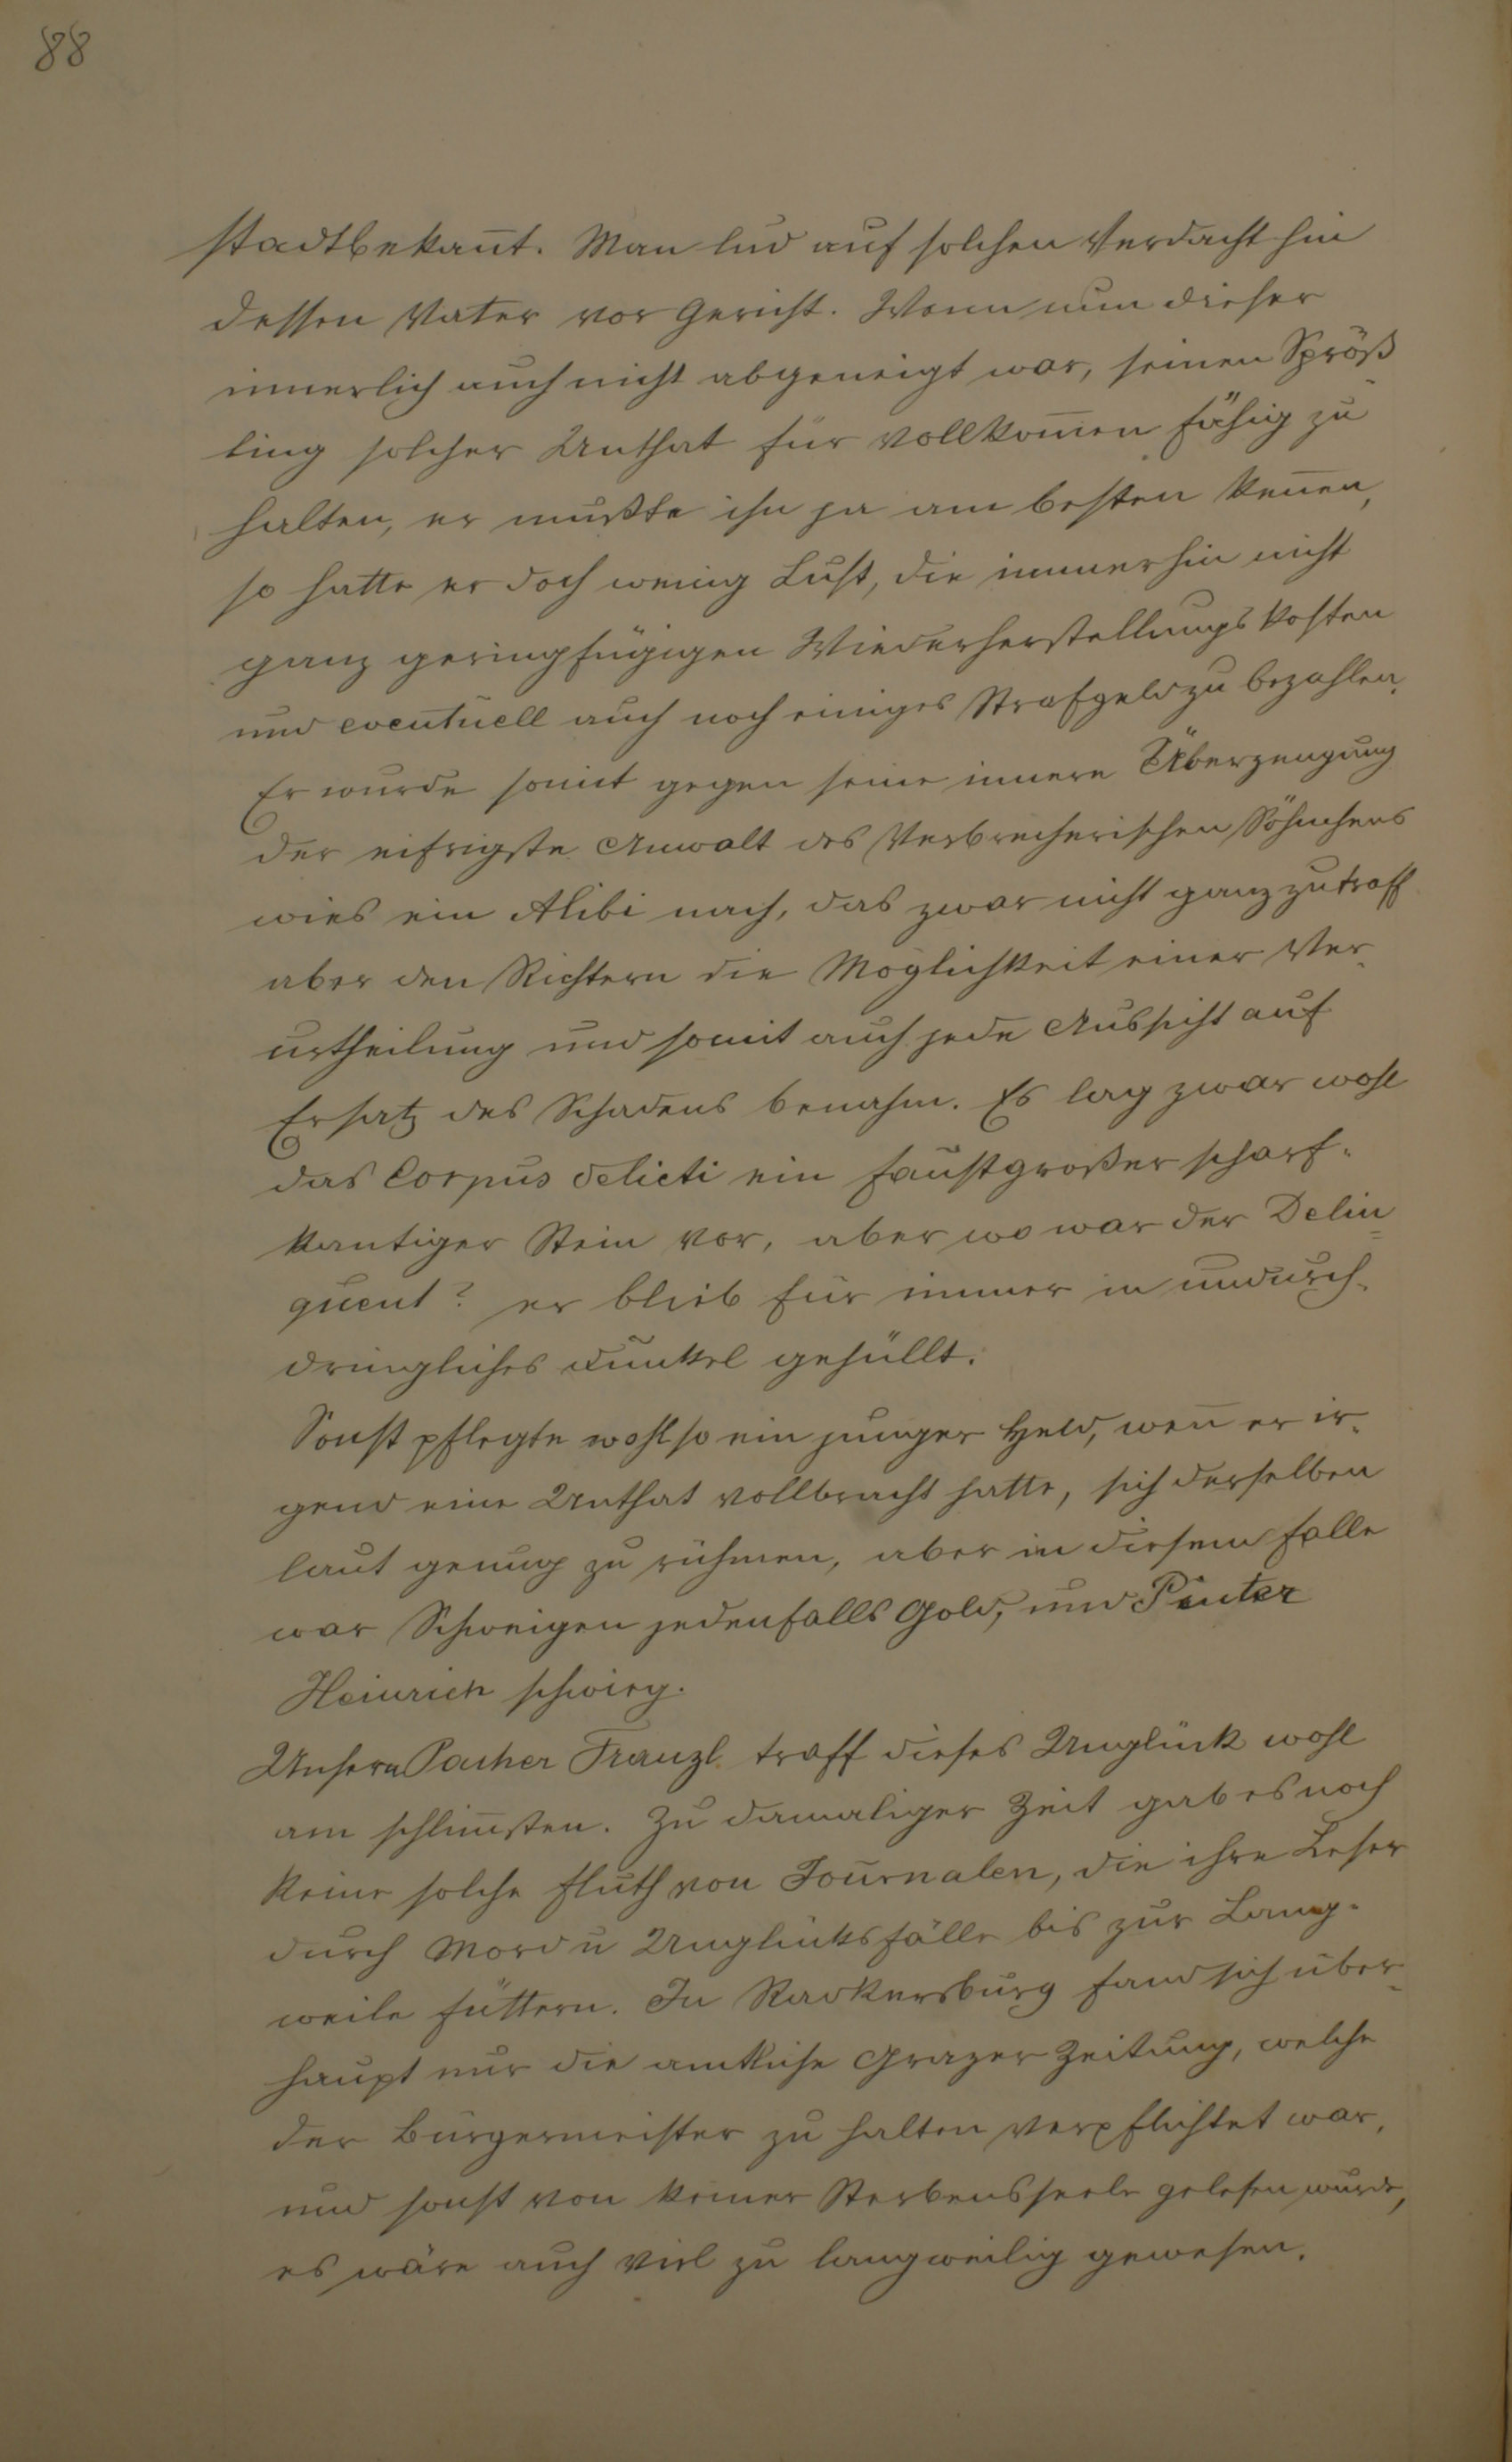 88
stadtbekan̄t. Man lud auf solchen Verdacht hin
dessen Vater vor Gericht. Wenn nun dieser
innerlich auch nicht abgeneigt war, seinen Spröß-
ling solcher Unthat für vollkom̄en fähig zu
halten, er mußte ihn ja am besten ken̄en,
so hatte er doch wenig Lust, die immerhin nicht
ganz geringfügigen Wiederherstellungskosten
und eventuell auch noch einiges Strafgeld zu bezahlen.
Er wurde somit gegen seine innere Überzeugung
der eifrigste Anwalt des Verbrecherischen Söhnchens
wies ein Alibi nach, das zwar nicht ganz zutraff
aber den Richtern die Möglichkeit einer Ver-
urtheilung und somit auch jede Aussicht auf
Ersatz des Schadens benahm. Es lag zwar wohl
das Corpus delicti ein faustgroßer scharf-
kantiger Stein vor, aber wo war der Delin=
quent? er blieb für immer in undurch-
dringliches Dunkel gehüllt.
Sonst pflegte wohl so ein junger Held, wen̄ er ir-
gend eine Unthat vollbracht hatte, sich derselben
laut genug zu rühmen, aber in diesem Falle
war Schweigen jedenfalls Gold, und Pinter
Heinrich schwieg.
Unsern Pacher Franzl traff dieses Unglück wohl
am schlim̄sten. Zu damaliger Zeit gab es noch
keine solche Fluth von Journalen, die ihre Leser
durch Mord u Unglücksfälle bis zur Lang-
weile füttern. In Radkersburg fand sich über-
haupt nur die amtliche Grazer Zeitung, welche
der Bürgermeister zu halten verpflichtet war,
und sonst von keiner Sterbensseele gelesen wurde,
es wäre auch viel zu langweilig gewesen.